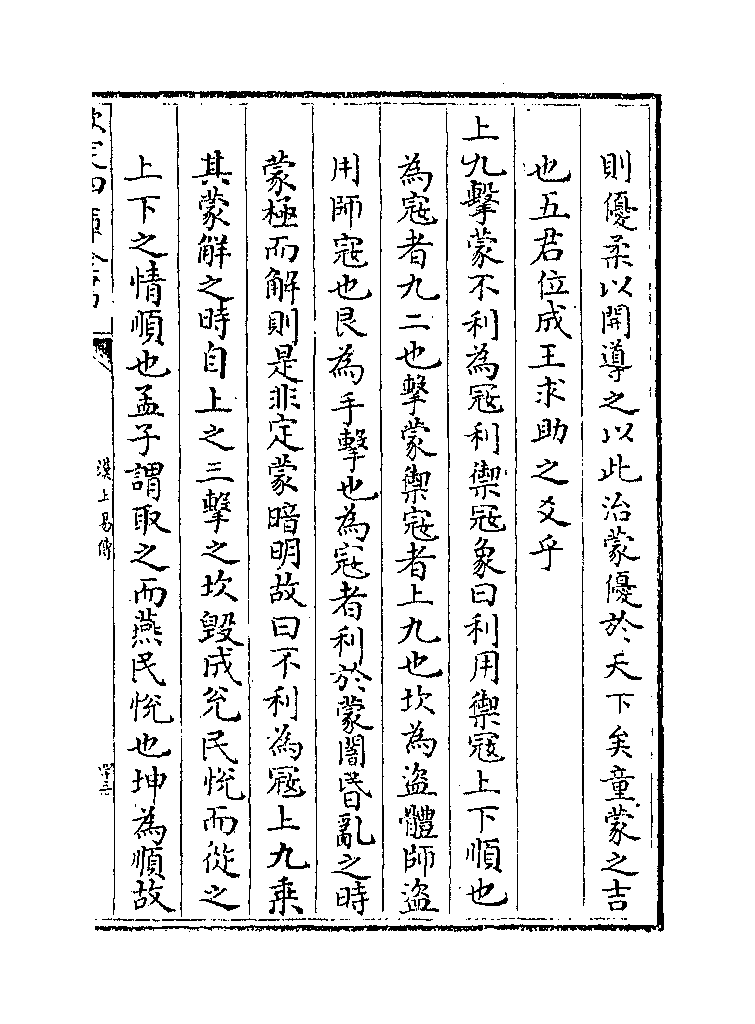 則優柔以開導之以此治蒙優於天下矣童蒙之吉
也五君位成王求助之爻乎
上九擊蒙不利為寇利禦寇象曰利用禦寇上下順也
為寇者九二也擊蒙禦寇者上九也坎為盜體師盜
用師寇也艮為手擊也為寇者利於蒙闇昏亂之時
蒙極而解則是非定蒙暗明故曰不利為寇上九乘
其蒙解之時自上之三擊之坎毀成兊民悅而從之
上下之情順也孟子謂取之而燕民悅也坤為順故
欽定四庫全書
漢上易傳